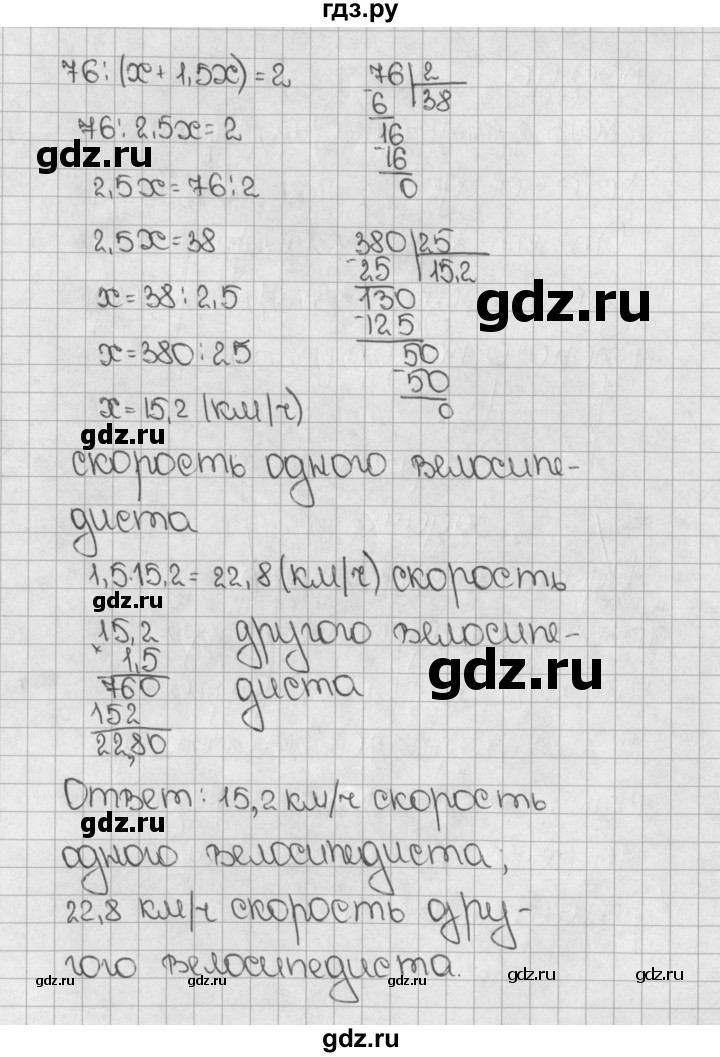 гдз.ру
76:(x+1,5x)=2
76:2,5x=2
2,5x=76:2
76 2
-6 38
16
-16
0
gdz.ru
2,5x=38
x=38:2,5
x=380:25
x=15,2 (км/ч)
380 25
-25 15,2
130
-125
50
-50
0
gdz.ru
gdz.ru
скорость одного велосипе-
диста
1,5·15,2=22,8(км/ч) скорость
gdz.ru
другого велосипе-
диста
15,2
× 1,5
760
152
22,80
gdz.ru
Ответ: 15,2 км/ч скорость
gdz.ru
одного велосипедиста;
22,8 км/ч скорость дру-
гого велосипедиста.
gdz.ru gdz.ru gdz.ru gdz.ru gdz.ru
gdz.ru